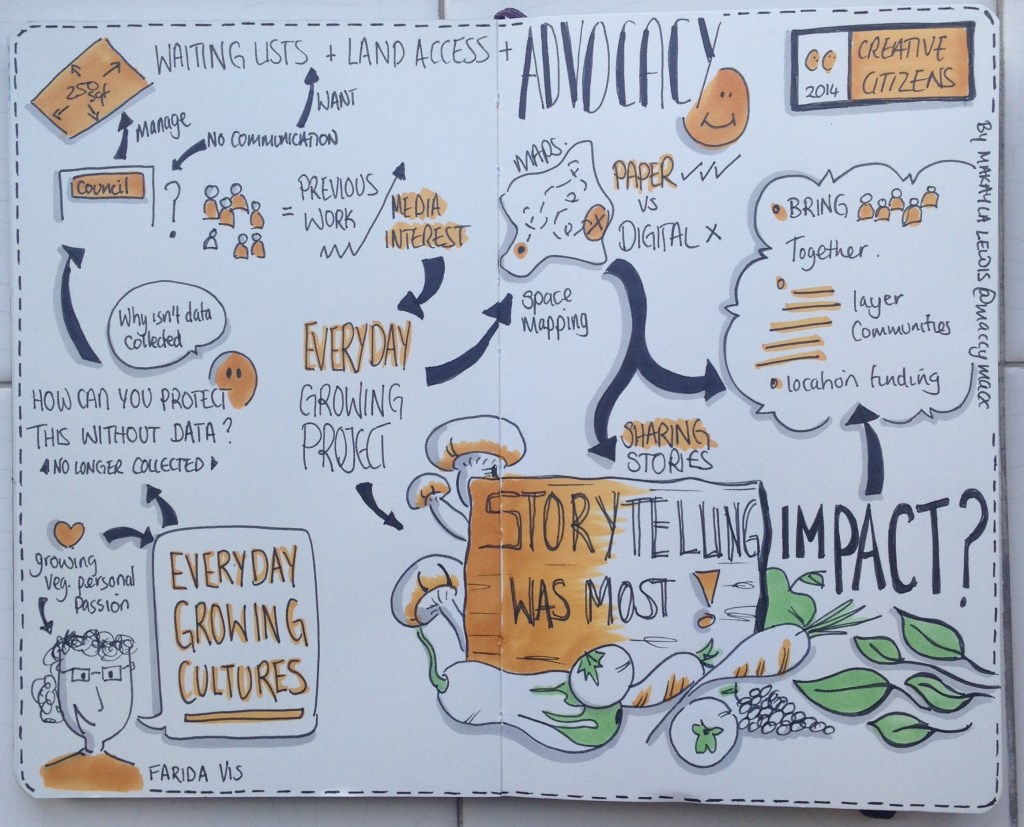 WAITING LISTS + LAND ACCESS +
ADVOCACY
2014
CREATIVE
CITIZENS
By MAKAYLA LEWIS @maccymacx
250
manage
WANT
NO COMMUNICATION
Council
?
=
PREVIOUS
WORK
MEDIA
INTEREST
MAPS:
X
PAPER
VS
DIGITAL X
Space
Mapping
BRING
Together.
layer
Communities
location funding
Why isn't data
collected
HOW CAN YOU PROTECT
THIS WITHOUT DATA?
NO LONGER COLLECTED
EVERYDAY
GROWING
PROJECT
SHARING
STORIES
STORYTELLING
WAS MOST !
IMPACT?
growing
veg. personal
passion
EVERYDAY
GROWING
CULTURES
FARIDA VIS